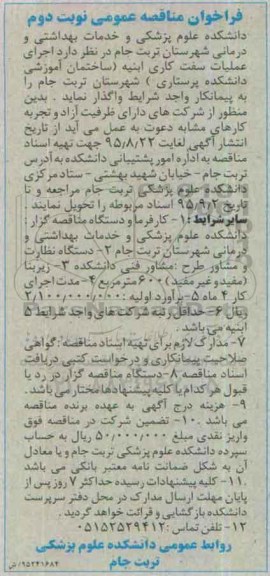 فراخوان مناقصه عمومی نوبت دوم
دانشکده علوم پزشکی و خدمات بهداشتی و
درمانی شهرستان تربت جام در نظر دارد اجرای
عملیات سفت کاری ابنیه (ساختمان آموزشی
دانشکده پرستاری ) شهرستان تربت جام را
به پیمانکار واجد شرایط واگذار نماید . بدین
منظور از شرکت های دارای ظرفیت آزاد و تجربه
کارهای مشابه دعوت به عمل می آید از تاریخ
انتشار آگهی لغایت ۹۵/۸/۲۲ جهت تهیه اسناد
مناقصه به اداره امور پشتیبانی دانشکده به آدرس
تربت جام - خیابان شهید بهشتی - ستاد مرکزی
دانشکده علوم پزشکی تربت جام مراجعه و تا
تاریخ ۹۵/۹/۲ اسناد مربوطه را تحویل نمایند .
سایر شرایط : ۱- کارفرما و دستگاه مناقصه گزار :
دانشکده علوم پزشکی و خدمات بهداشتی و
درمانی شهرستان تربت جام ۲- دستگاه نظارت
و مشاور طرح :مشاور فنی دانشکده ۳- زیربنا
(مفید و غیر مفید) ۶۰۰ مترمربع ۴- مدت اجرای
کار ۴ ماه ۵- برآورد اولیه : ۲/۱۰۰/۰۰۰/۰۰۰
ریال ۶- حداقل رتبه شرکت های واجد شرایط ۵
ابنیه می باشد .
۷- مدارک لازم برای تهیه اسناد مناقصه : گواهی
صلاحیت پیمانکاری و درخواست کتبی دریافت
اسناد مناقصه ۸- دستگاه مناقصه گزار در رد یا
قبول هر کدام یا کلیه پیشنهادها مختار می باشد .
۹- هزینه درج آگهی به عهده برنده مناقصه
می باشد . ۱۰- تضمین شرکت در مناقصه فوق
واریز نقدی مبلغ ۵۰/۰۰۰/۰۰۰ ریال به حساب
سپرده دانشکده علوم پزشکی تربت جام و یا معادل
آن به شکل ضمانت نامه معتبر بانکی می باشد
.۱۱- کلیه پیشنهادات رسیده حداکثر ۷ روز پس از
پایان مهلت ارسال مدارک در محل دفتر سرپرست
دانشکده بازگشایی و قرائت خواهد گردید .
۱۲- تلفن تماس : ۰۵۱۵۲۵۲۹۴۱۲
روابط عمومی دانشکده علوم پزشکی
تربت جام
۹۵۲۴۱۶۸۴/ش